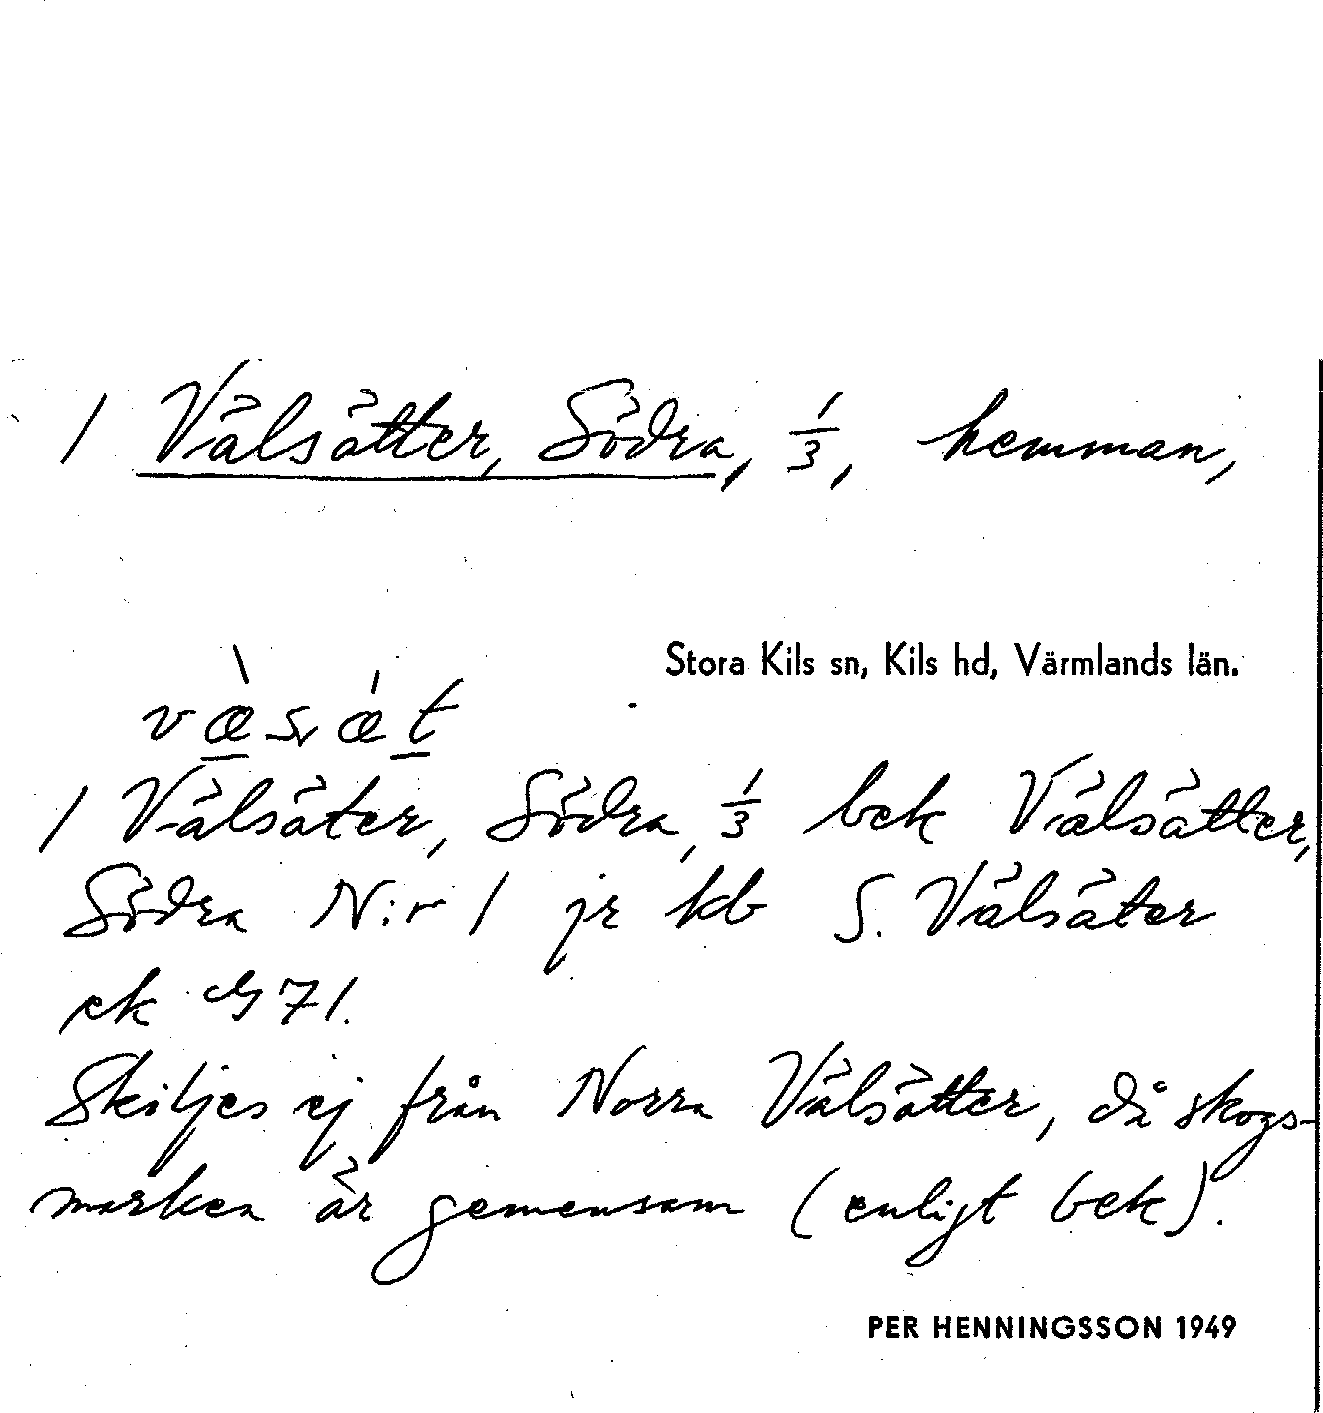 1 Välsätter, Södra, 1/3, hemman,
Stora Kils sn, Kils hd, Värmlands län.
1 Välsäter, Södra, 1/3 bek Välsätter,
Södra N:r 1 jr kb S. Välsäter
ek 71.
Skiljes ej från Norra Välsätter, då skogs-
marken är gemensam (enligt bek).
PER HENNINGSSON 1949